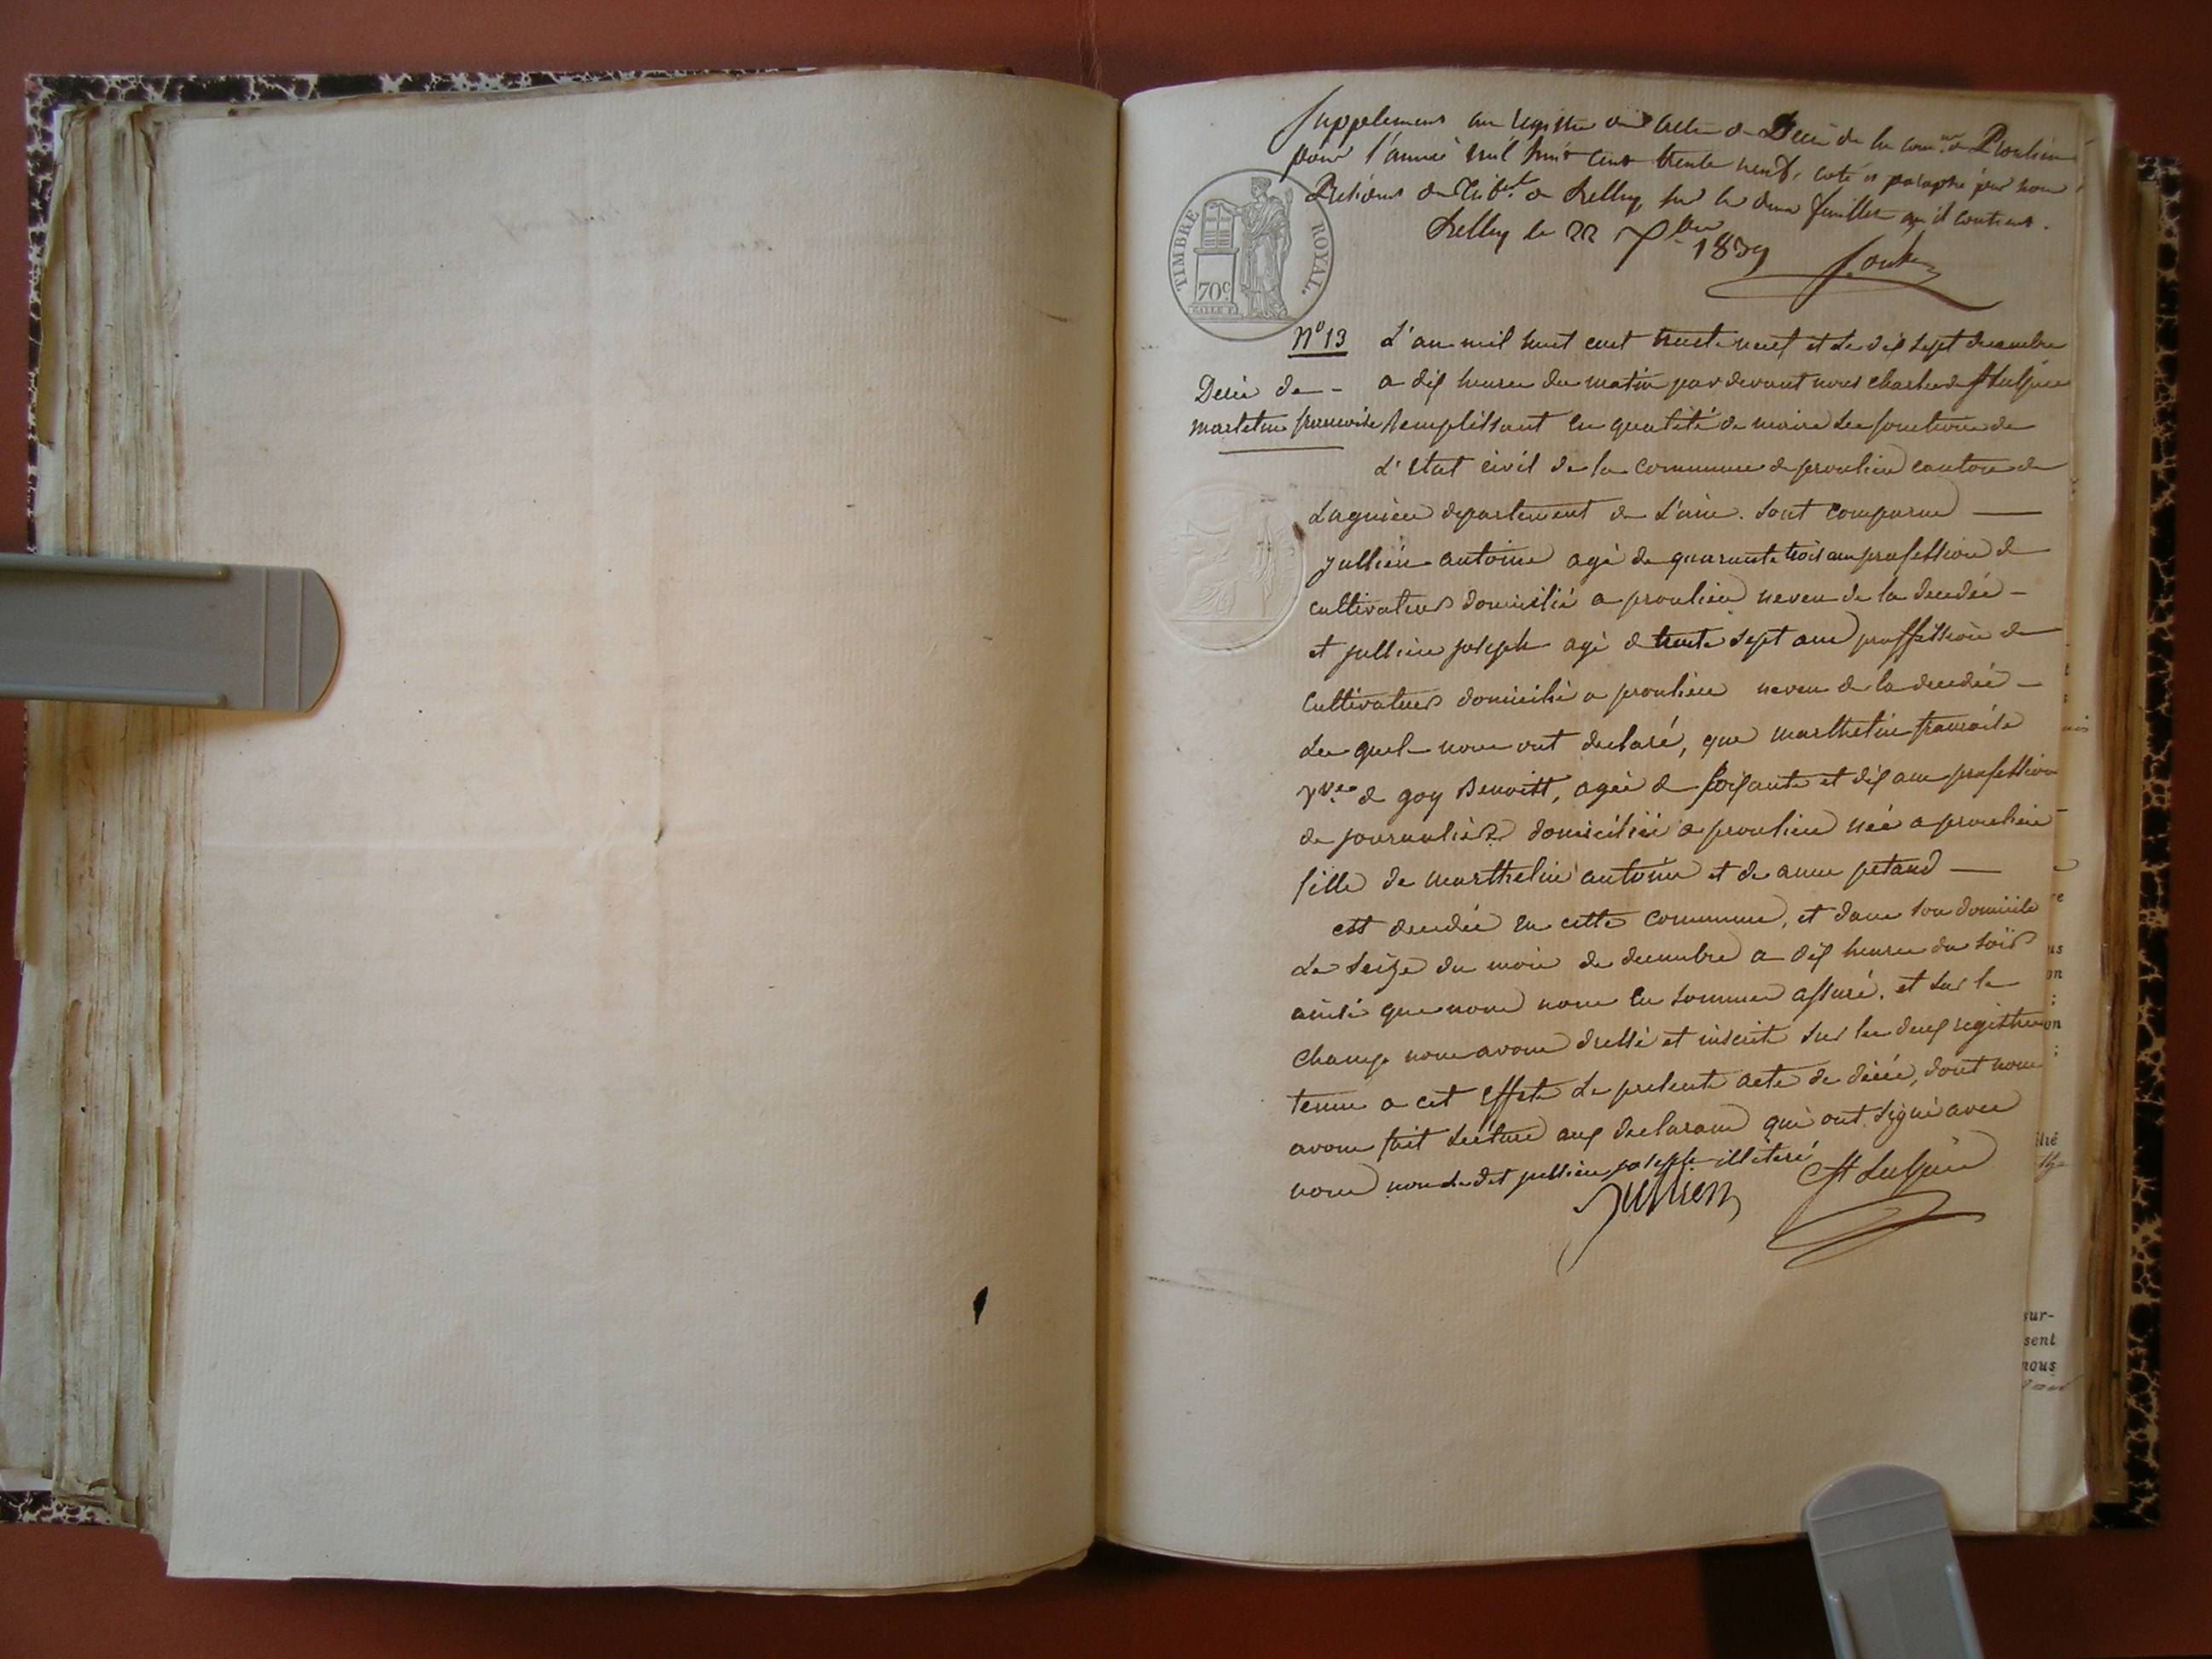 Supplement au registre des actes de Décès de la comne de Proulieu
pour l'année mil huit cent trente neuf, coté et paraphé par nous
Président du Tribal de Belley sur les deux feuilles qu'il contient.
Belley le 22 Xbre 1839
TIMBRE ROYAL.
70c
N° 13
Décès de -
martelin francoise
L'an mil huit cent trente neuf et le dix sept decembre
a dix heures du matin par devant nous charles de St Sulpice
Remplissant en qualité de maire les fonctions de
L'etat civil de la Commune de proulieu canton de
Lagnieu departement de L'ain. sont comparus
jullien antoine agé de quarante trois ans profession de
cultivateur domicilié a proulieu neveu de la decedée -
et jullien joseph agé de trente sept ans proffession de
Cultivateur domicilié a proulieu neveu de la decedée -
Les quels nous ont declaré, que marthelin francoise
vve de goy Benoitt, agée de soixante et dix ans profession
de journaliere domiciliée a proulieu née a proulieu
fille de marthelin antoine et de anne petaud
est decedée en cette commune, et dans son domicile
Le seize du mois de decembre a dix heures du soir
ainsi que nous nous en sommes assuré. et sur le
champ nous avons dressé et inscrit sur les deux registres
tenus a cet effet Le present acte de décès, dont nous
avons fait Lecture aux declarans qui ont signé avec
nous non Le dit jullien joseph illiteré
Jullien
St Sulpice
us
on
;
on
;
sur-
sent
nous